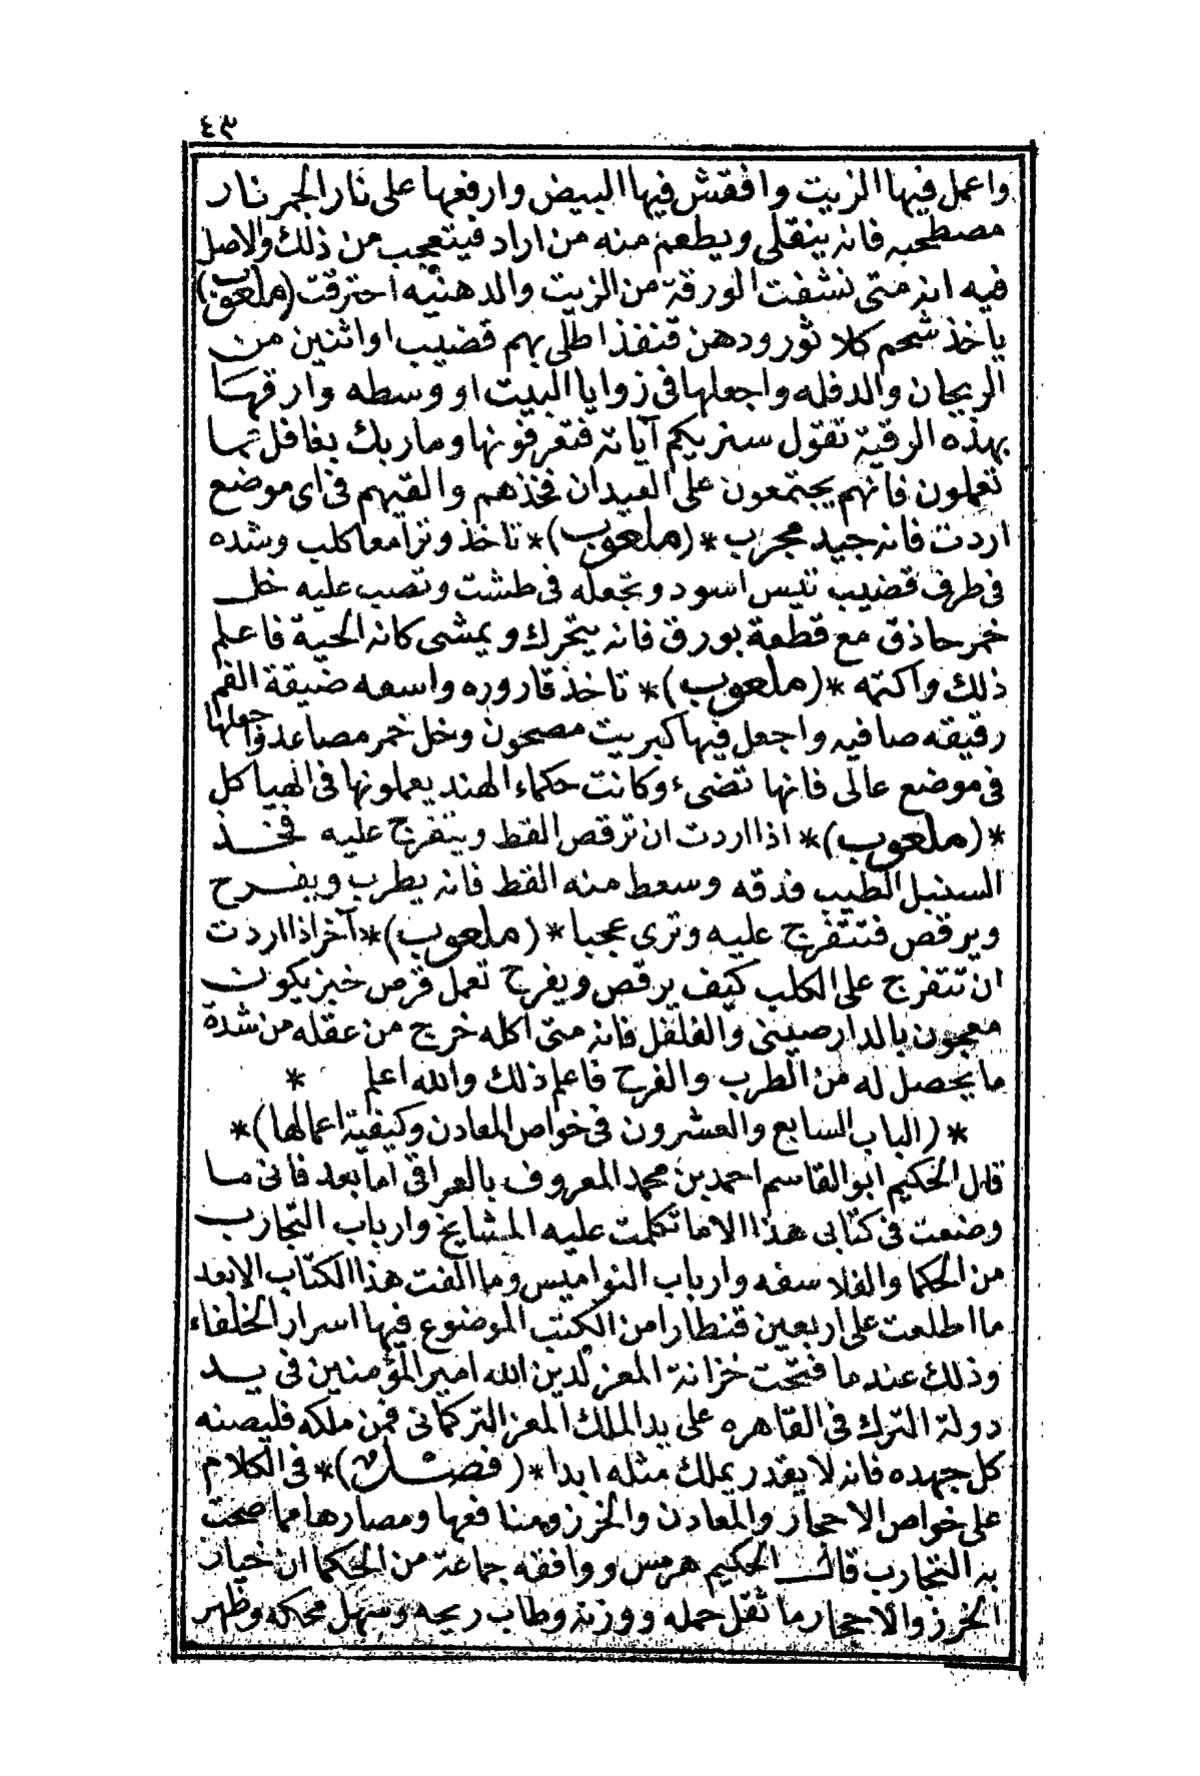 ٤٣
واعمل فيها الزيت وافقش فيها البيض وارفعها على نار الجمر نار
مصطحبه فانه ينقلى ويطعم منه من اراد فيتعجب من ذلك والاصل
فيه انه متى نشفت الورقة من الزيت والدهنيه احترقت (ملعوب)
ياخذ شحم كلا ثور ودهن قنفذ اطلى بهم قضيب او اثنين من
الريحان والدفله واجعلها فى زوايا البيت او وسطه وارقها
بهذه الرقية تقول سنريكم آياته فتعرفونها وما ربك بغافل عما
تعملون فانهم يجتمعون على العيدان فخذهم والقيهم فى اى موضع
اردت فانه جيد مجرب *(ملعوب)* تاخذ وترا معا كلب وشده
فى طرف قضيب تيس اسود وتجعله فى طشت وتصب عليه خل
خمر حاذق مع قطعة بورق فانه يتحرك ويمشى كانه الحية فاعلم
ذلك واكتمه *(ملعوب)* تاخذ قاروره واسعه ضيقة الفم
رقيقه صافيه واجعل فيها كبريت مصحون وخل خمر مصاعد واجعلها
فى موضع عالى فانها تضىء وكانت حكماء الهند يعملونها فى الهياكل
*(ملعوب)* اذا اردت ان ترقص القط ويتفرج عليه فخذ
السنبل الطيب فدقه وسعط منه القط فانه يطرب ويفرح
ويرقص فتتفرج عليه وترى عجبا *(ملعوب)* آخر اذا اردت
ان تتفرج على الكلب كيف يرقص ويفرح تعمل قرص خبز يكون
معجون بالدارصينى والفلفل فانه متى اكله خرج من عقله من شدة
ما يحصل له من الطرب والفرح فاعلم ذلك والله اعلم *
*(الباب السابع والعشرون فى خواص المعادن وكيفية اعمالها)*
قال الحكيم ابو القاسم احمد بن محمد المعروف بالعراقى اما بعد فانى ما
وضعت فى كتابى هذا الا ما تكلمت عليه المشايخ وارباب التجارب
من الحكما والفلاسفه وارباب النواميس وما الفت هذا الكتاب الا بعد
ما اطلعت على اربعين قنطارا من الكتب الموضوع فيها اسرار الخلفاء
وذلك عند ما فتحت خزانة المعز لدين الله امير المؤمنين فى يد
دولة الترك فى القاهره على يد الملك المعز التركمانى فمن ملكه فليصنه
كل جهده فانه لا يقدر يملك مثله ابدا *(فصل)* فى الكلام
على خواص الاحجار والمعادن والخرز ومنافعها ومصارها مما صحت
به التجارب قال الحكيم هرمس ووافقه جماعة من الحكما ان خيار
الخرز والاحجار ما ثقل حمله ووزنه وطاب ريحه وسهل محكه وظهر